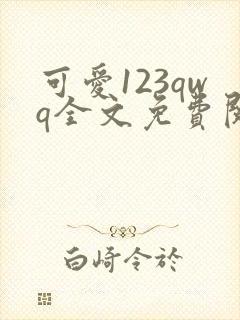 可愛123qw
q全文免費閱
白崎令於